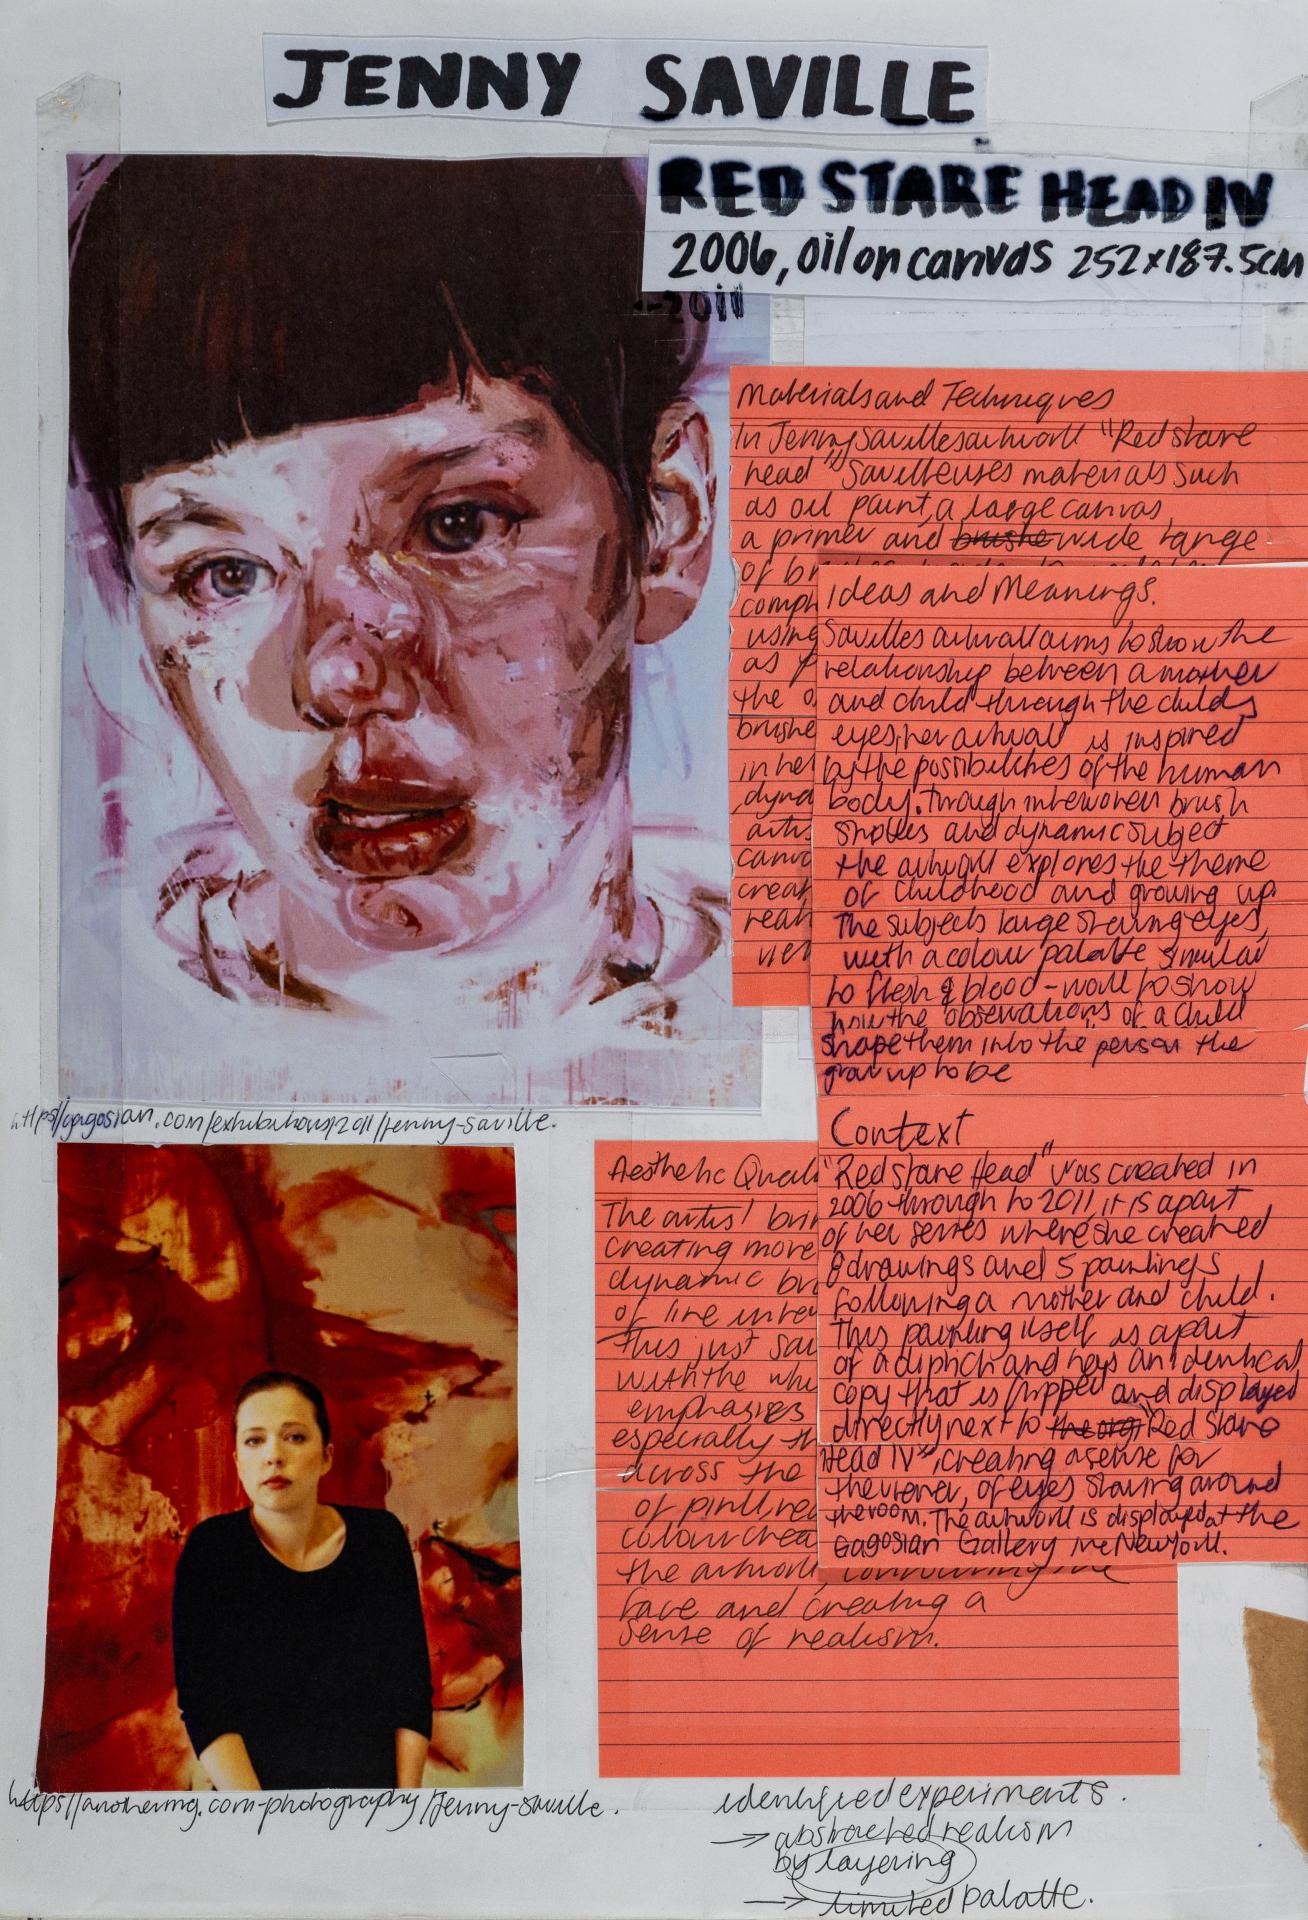 JENNY SAVILLE
RED STARE HEAD IV
2006, oil on canvas 252x187.5cm
-2011
Materials and Techniques
In Jenny Savilles artwork "Red stare
head" Saville uses materials such
as oil paint, a large canvas,
a primer and brushe wide range
of br
comp
using
as p
the o
brushe
in her
dyna
artis
canv
creat
reali
view
Ideas and Meanings.
Savilles artwork aims to show the
relationship between a mother
and child through the childs
eyes, her artwork is inspired
by the possibilities of the human
body. Through interwoven brush
strokes and dynamic subject
the artwork explores the theme
of childhood and growing up.
The subjects large staring eyes,
with a colour palatte similar
to flesh & blood - work to show
how the observations of a child
shape them into the person the
grow up to be
Context
"Red stare Head" was created in
2006 through to 2011, it is apart
of her series where she created
8 drawings and 5 paintings
following a mother and child.
This painting itself is apart
of a diptich and has an identical
copy that is flipped and displayed
directly next to the org "Red Stare
Head IV", creating a sense for
the viewer, of eyes staring around
the room. The artwork is displayed at the
Gagosian Gallery in New York.
https//gagosian.com/exhibitions/2011/jenny-saville.
Aesthetic Quali
The artist brin
creating more
dynamic br
of line inter
this just sav
with the whi
emphasies
especially th
across the
of pink, red
colour crea
the artwork, contouring the
face and creating a
sense of realism.
https//anothermg.com-photography/jenny-saville.
identified experiments.
→ abstracted realism
by layering
→ limited palatte.